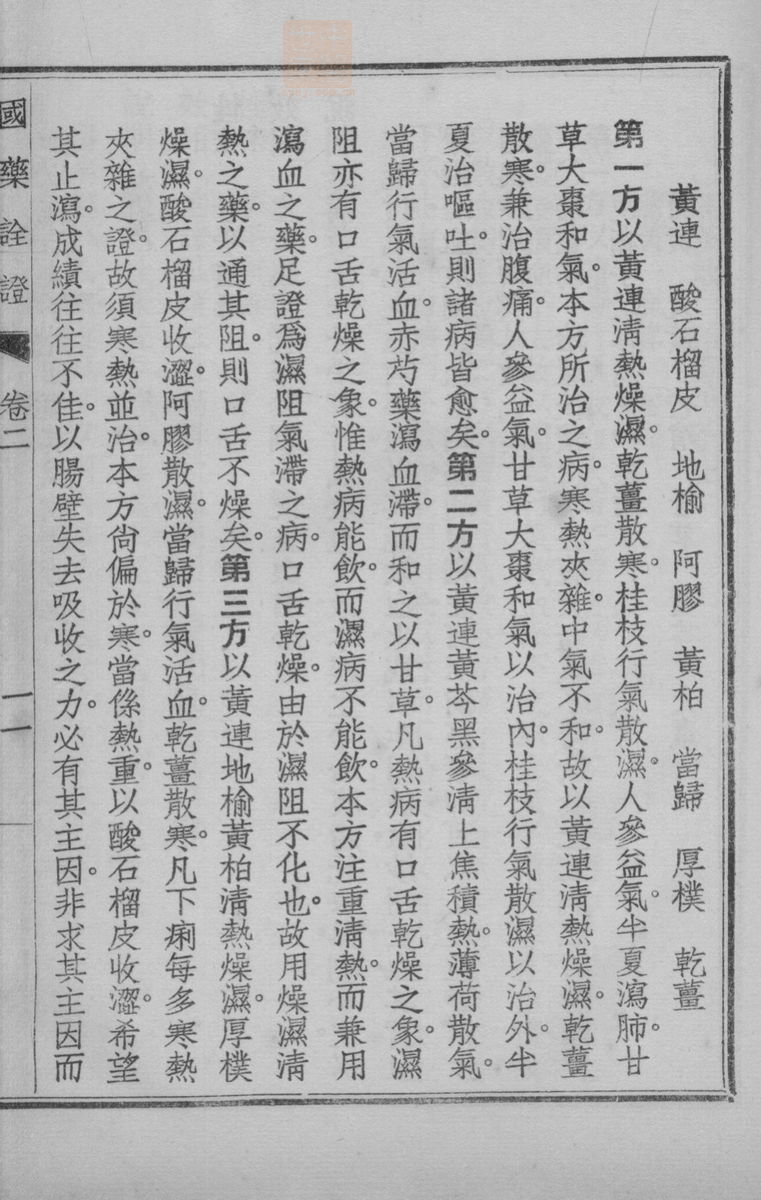 黃連　酸石榴皮　地榆　阿膠　黃柏　當歸　厚樸　乾薑
第一方以黃連淸熱燥濕。乾薑散寒。桂枝行氣散濕。人參益氣。半夏瀉肺。甘
草大棗和氣。本方所治之病。寒熱夾雜。中氣不和。故以黃連淸熱燥濕。乾薑
散寒。兼治腹痛。人參益氣。甘草大棗和氣以治內。桂枝行氣散濕以治外。半
夏治嘔吐。則諸病皆愈矣。第二方以黃連黃芩黑參淸上焦積熱。薄荷散氣。
當歸行氣活血。赤芍藥瀉血滯。而和之以甘草。凡熱病有口舌乾燥之象。濕
阻亦有口舌乾燥之象。惟熱病能飮。而濕病不能飮。本方注重淸熱。而兼用
瀉血之藥。足證爲濕阻氣滯之病。口舌乾燥。由於濕阻不化也。故用燥濕淸
熱之藥。以通其阻。則口舌不燥矣。第三方以黃連地榆黃柏淸熱燥濕。厚樸
燥濕。酸石榴皮收澀。阿膠散濕。當歸行氣活血。乾薑散寒。凡下痢每多寒熱
夾雜之證。故須寒熱並治。本方尙偏於寒。當係熱重。以酸石榴皮收澀。希望
其止瀉。成績往往不佳。以腸壁失去吸收之力。必有其主因。非求其主因而
國藥詮證　卷二　一一